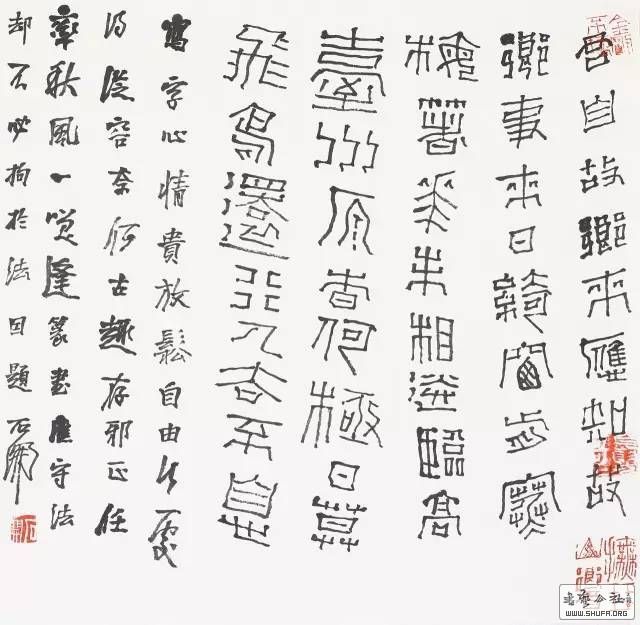 君自故鄉來應知故
鄉事來日綺窗前寒
梅著花未相送臨高
臺川原杳何極日暮
飛鳥還行人去不息
寫字心情貴放鬆自由處
得從容奈何古趣存邪正任
率秋風一覺逢篆書應守法
却不必拘於法因題石開
書藝公社
WWW.SHUFA.ORG